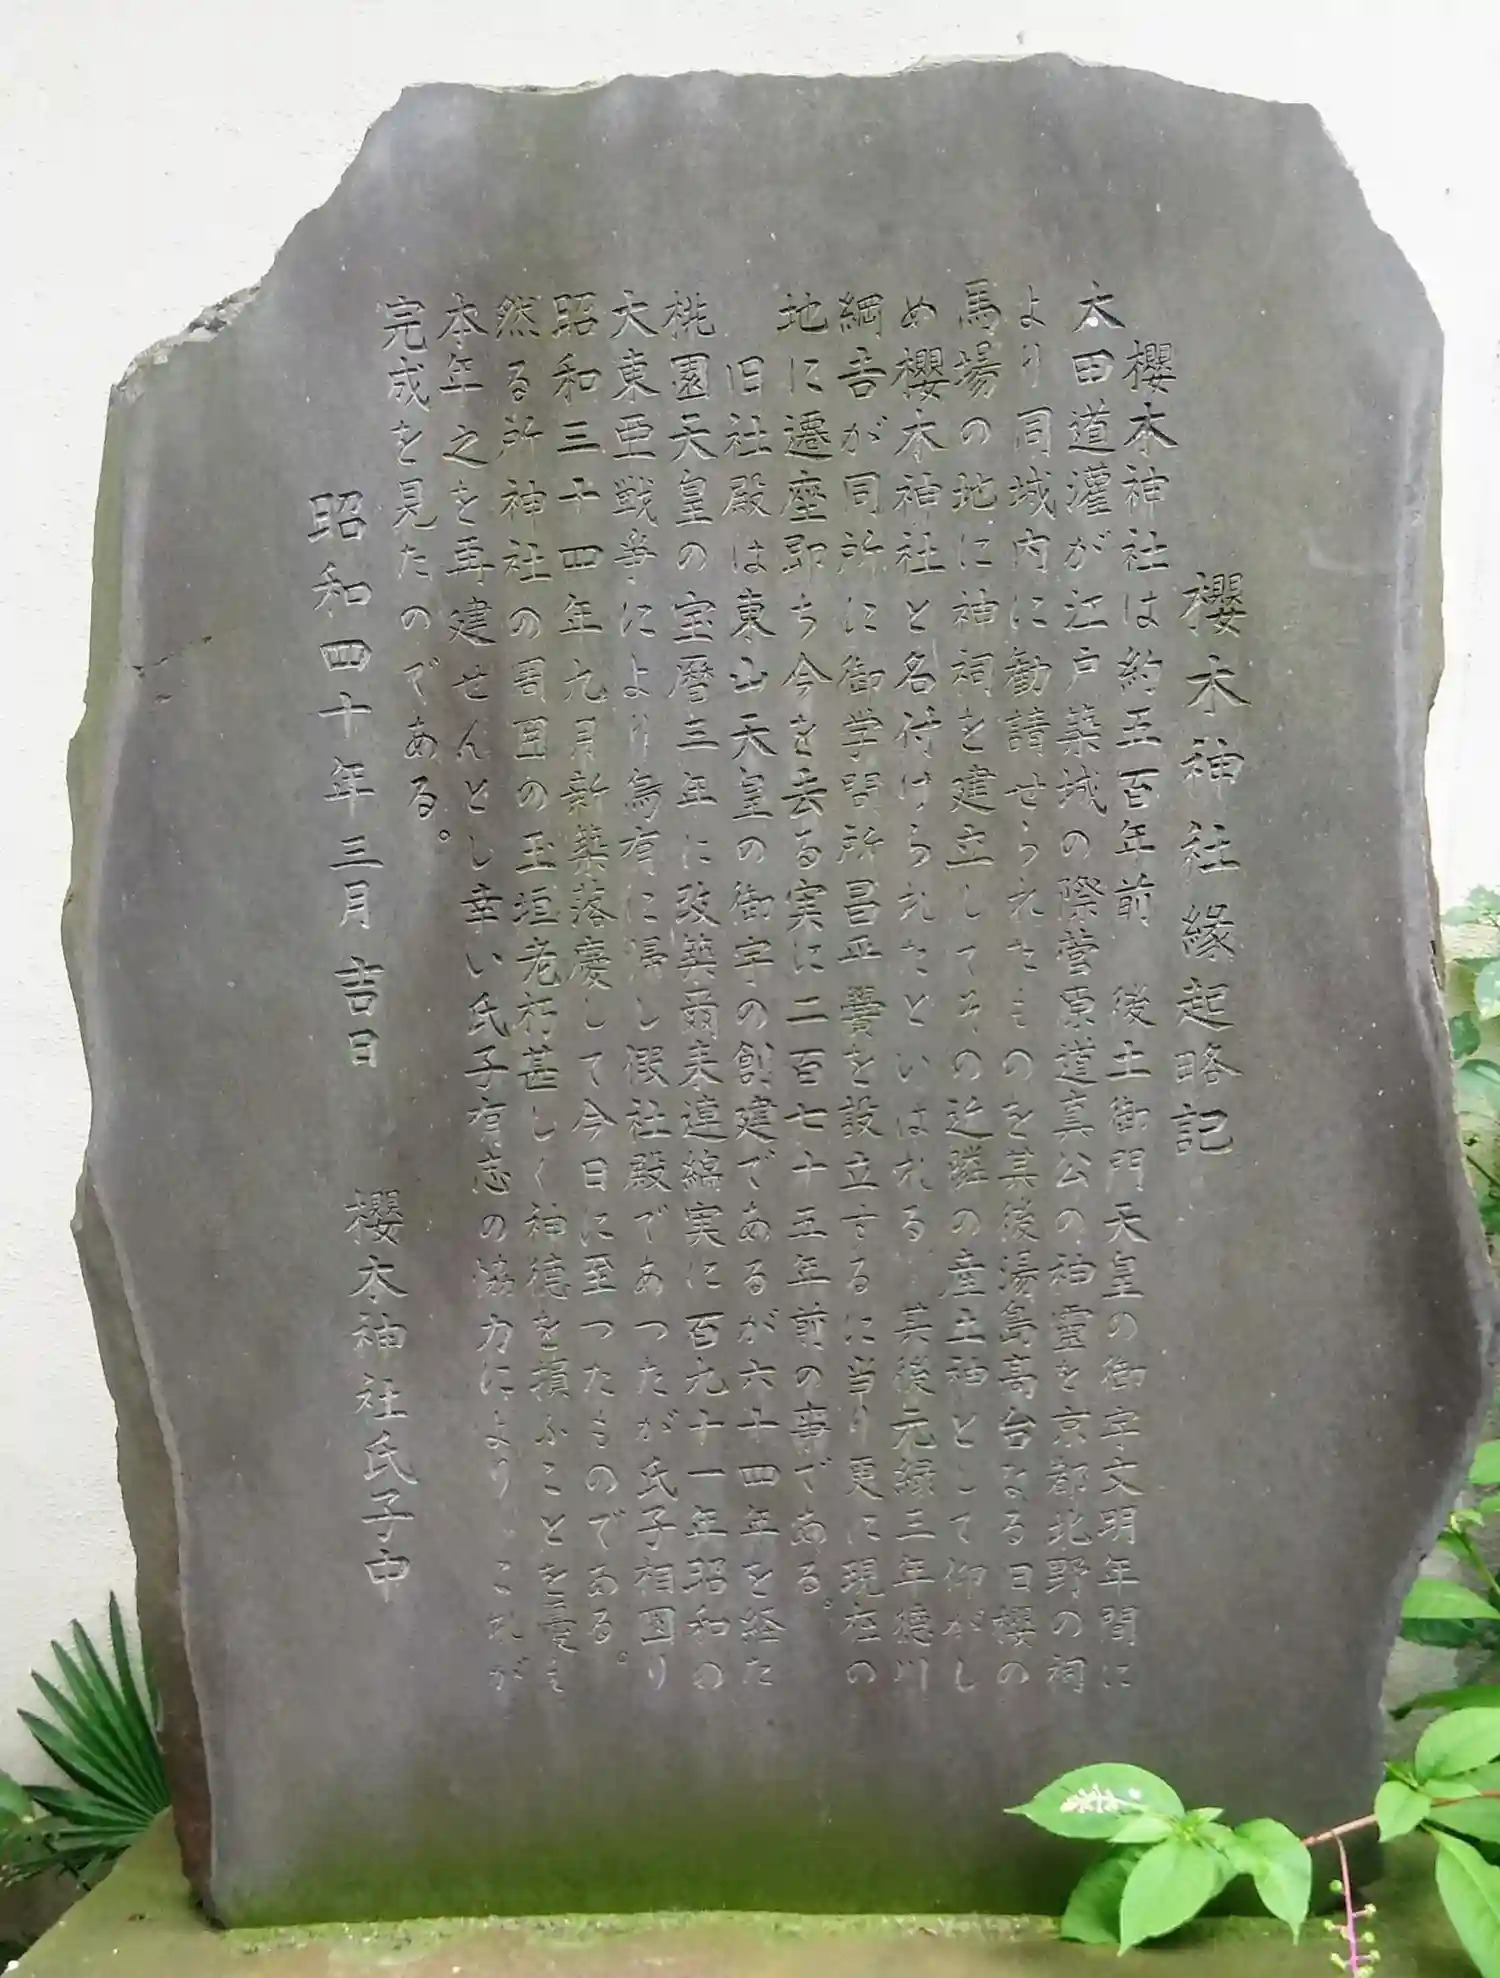 櫻木神社縁起略記
櫻木神社は約五百年前　後土御門天皇の御宇文明年間に
太田道灌が江戸築城の際菅原道真公の神靈を京都北野の祠
より同城内に勧請せられたものを其後湯島高台なる旧櫻の
馬場の地に神祠を建立してその近隣の産土神として仰がし
め櫻木神社と名付けられたといはれる　其後元緑三年徳川
綱吉が同所に御学問所昌平黌を設立するに当り更に現在の
地に遷座即ち今を去る実に二百七十五年前の事である。
旧社殿は東山天皇の御宇の創建であるが六十四年を経た
桃園天皇の宝暦三年に改築爾来連綿実に百九十一年昭和の
大東亜戦争により烏有に帰し假社殿であつたが氏子相図り
昭和三十四年九月新築落慶して今日に至つたものである。
然る所神社の周囲の玉垣老朽甚しく神徳を損ふことを憂え
本年之を再建せんとし幸い氏子有志の協力により、これが
完成を見たのである。
昭和四十年三月吉日　櫻木神社氏子中